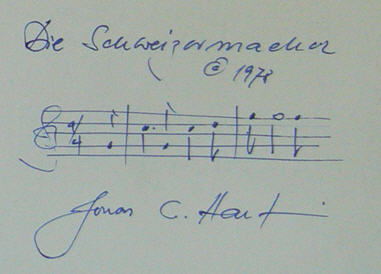 Die Schweizermacher
© 1978
4/4
Jonas C. Haefeli